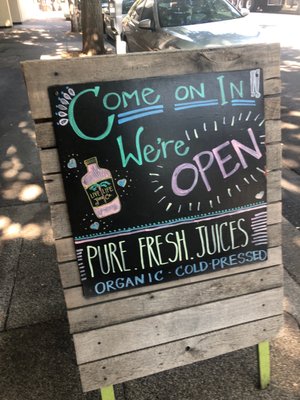 COME ON IN
We're
OPEN
LIVE
LIFE
PURE. FRESH. JUICES
ORGANIC · COLD-PRESSED